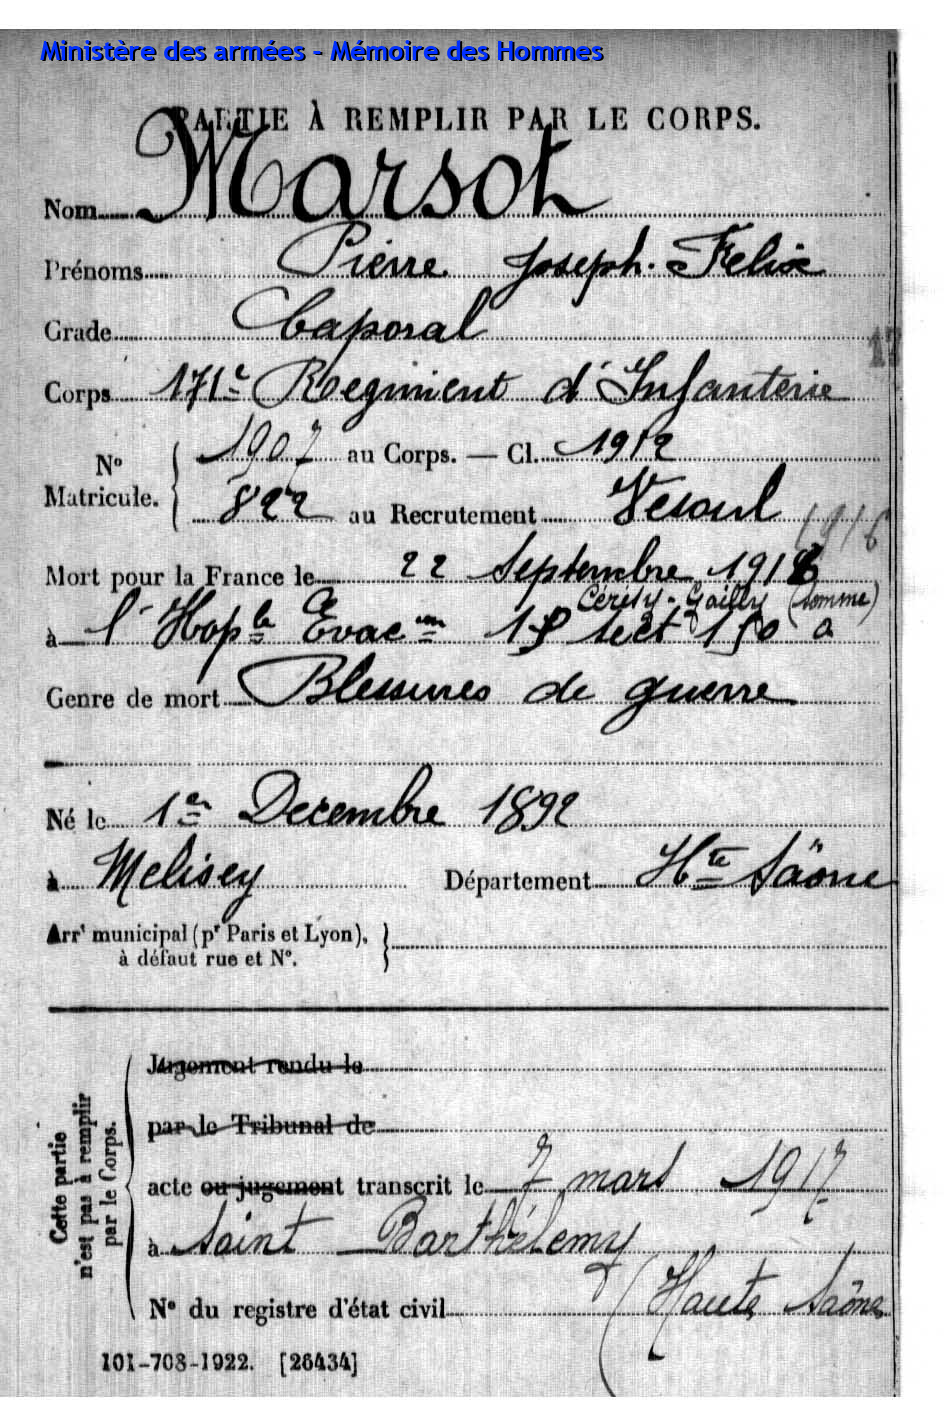 Ministère des armées - Mémoire des Hommes
PARTIE À REMPLIR PAR LE CORPS.
Nom Marsot
Prénoms Pierre Joseph. Felix
Grade Caporal
Corps 171e Regiment d'Infanterie
N° Matricule. { 1907 au Corps. — Cl. 1912
822 au Recrutement Vesoul
1916
Mort pour la France le 22 Septembre 1916
Cerisy-Gailly (Somme)
à l'Hople Evacon 15 sect 150 a
Genre de mort Blessures de guerre
Né le 1er Decembre 1892
à Melisey Département Hte Saône
Arrt municipal (pr Paris et Lyon), }
à défaut rue et N°.
Cette partie
n'est pas à remplir
par le Corps.
Jugement rendu le
par le Tribunal de
acte ou jugement transcrit le 7 mars 1917
à Saint Barthélemy
N° du registre d'état civil (Haute Saône
101-708-1922. [26434]